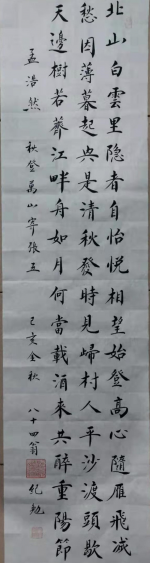 北山白雲里隐者自怡悦相望始登高心隨雁飛滅
愁因薄暮起興是清秋發時見歸村人平沙渡頭歇
天邊樹若薺江畔舟如月何當載酒来共醉重陽節
孟浩然 秋登萬山寄張五 己亥金秋 八十四翁